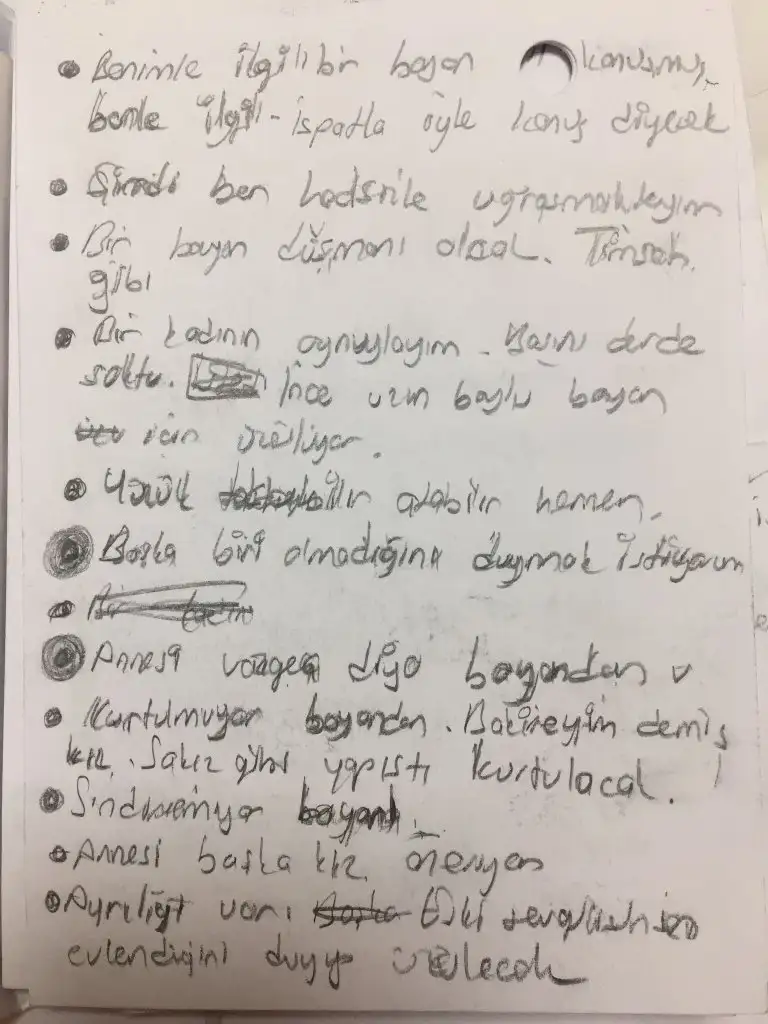 • Benimle ilgili bir bayan konuşmuş,
benle ilgili - ispatla öyle konuş diyecek
• Şimdi ben uğraşmaktayım
• Bir bayan düşmanı olacak. Timsah
gibi
• Bir kadının oynuyla Başını derde
soktu. İnce uzun boylu bayan
için üzülüyor.
• Yüzük atabilir hemen.
• Başka biri olmadığını duymak istiyorum
• Bir
• Annesi vazgeç diyo bayandan
• Kurtulmuyor bayandan. Bakireyim demiş
kız. Sakız gibi yapıştı kurtulacak.
• Sindiremiyor bayanı
• Annesi başka kız öneriyor
• Ayrılığı var. Eski
evlendiğini duyup üzülecek